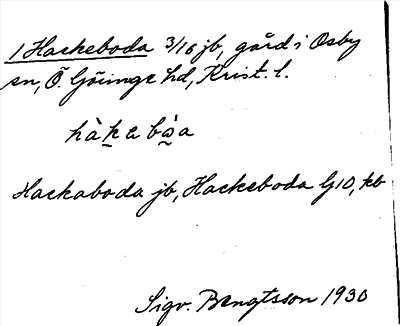 1 Hackeboda 3/16 jb, gård i Osby
sn, Ö. Göinge hd, Krist. l.
hàk̠e bò̰a
Hackaboda jb, Hackeboda G10, kb
Sigv. Bengtsson 1930